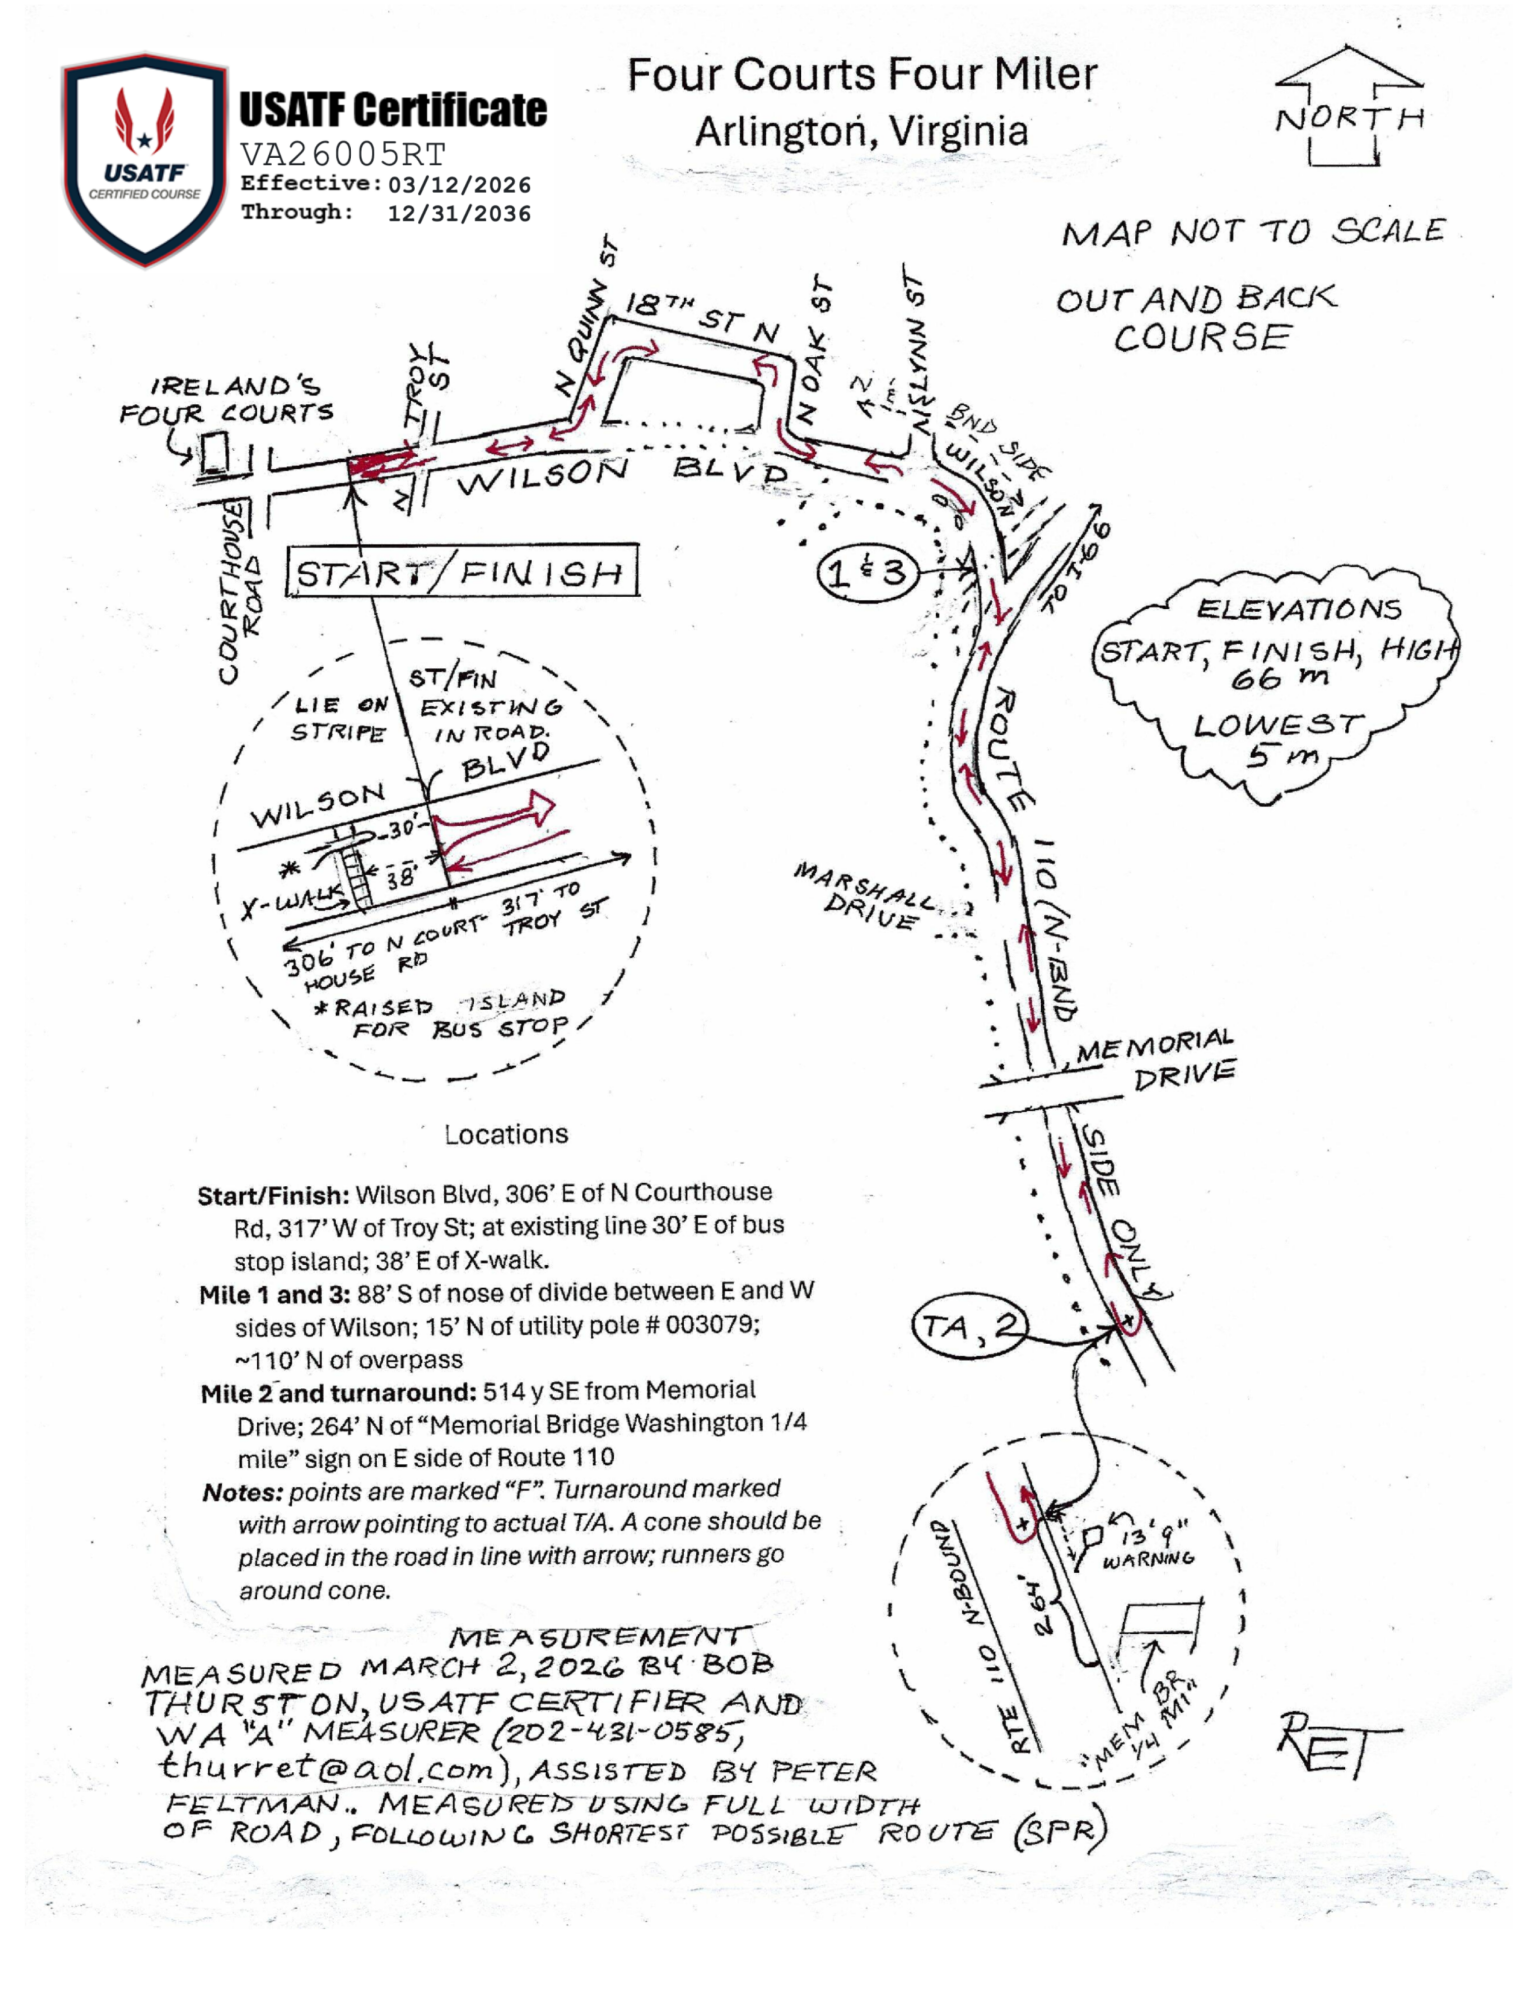 USATF
CERTIFIED COURSE
USATF Certificate
VA26005RT
Effective: 03/12/2026
Through: 12/31/2036
Four Courts Four Miler
Arlington, Virginia
NORTH
MAP NOT TO SCALE
OUT AND BACK
COURSE
IRELAND'S
FOUR COURTS
TROY
ST
N
N QUINN ST
18TH ST N
N OAK ST
WILSON BLVD
BND SIDE
WILSON
TO I-66
COURTHOUSE
ROAD
START/FINISH
1 & 3
ELEVATIONS
START, FINISH, HIGH
66 m
LOWEST
5 m
ROUTE 110 (N-BND
SIDE ONLY)
MARSHALL
DRIVE
MEMORIAL
DRIVE
TA, 2
ST/FIN
LIE ON EXISTING
STRIPE IN ROAD.
WILSON BLVD
30'
*
38'
X-WALK
306' TO N COURT-
HOUSE RD
317' TO
TROY ST
*RAISED ISLAND
FOR BUS STOP
Locations
Start/Finish: Wilson Blvd, 306' E of N Courthouse
Rd, 317' W of Troy St; at existing line 30' E of bus
stop island; 38' E of X-walk.
Mile 1 and 3: 88' S of nose of divide between E and W
sides of Wilson; 15' N of utility pole # 003079;
~110' N of overpass
Mile 2 and turnaround: 514 y SE from Memorial
Drive; 264' N of “Memorial Bridge Washington 1/4
mile” sign on E side of Route 110
Notes: points are marked “F”. Turnaround marked
with arrow pointing to actual T/A. A cone should be
placed in the road in line with arrow; runners go
around cone.
RTE 110 N-BOUND
264'
13' 9"
WARNING
"MEM BR
1/4 MI"
MEASUREMENT
MEASURED MARCH 2, 2026 BY BOB
THURSTON, USATF CERTIFIER AND
WA "A" MEASURER (202-431-0585,
thurret@aol.com), ASSISTED BY PETER
FELTMAN.. MEASURED USING FULL WIDTH
OF ROAD, FOLLOWING SHORTEST POSSIBLE ROUTE (SPR)
RET